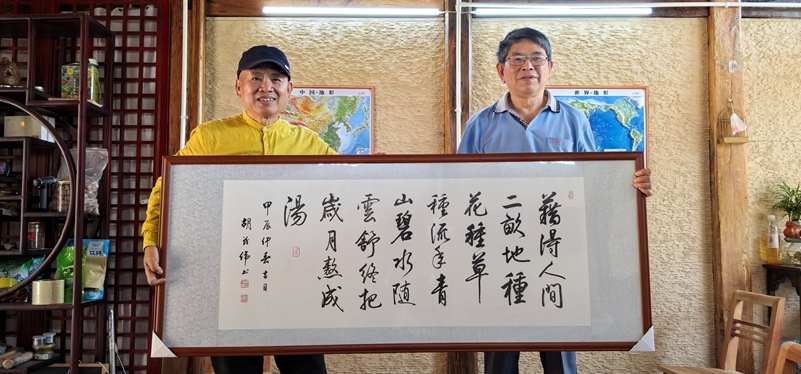 中国·地形
世界·地形
藉得人間
二畝地種
花種草
種流年青
山碧水随
雲舒终把
歲月熬成
湯
甲辰仲春吉日